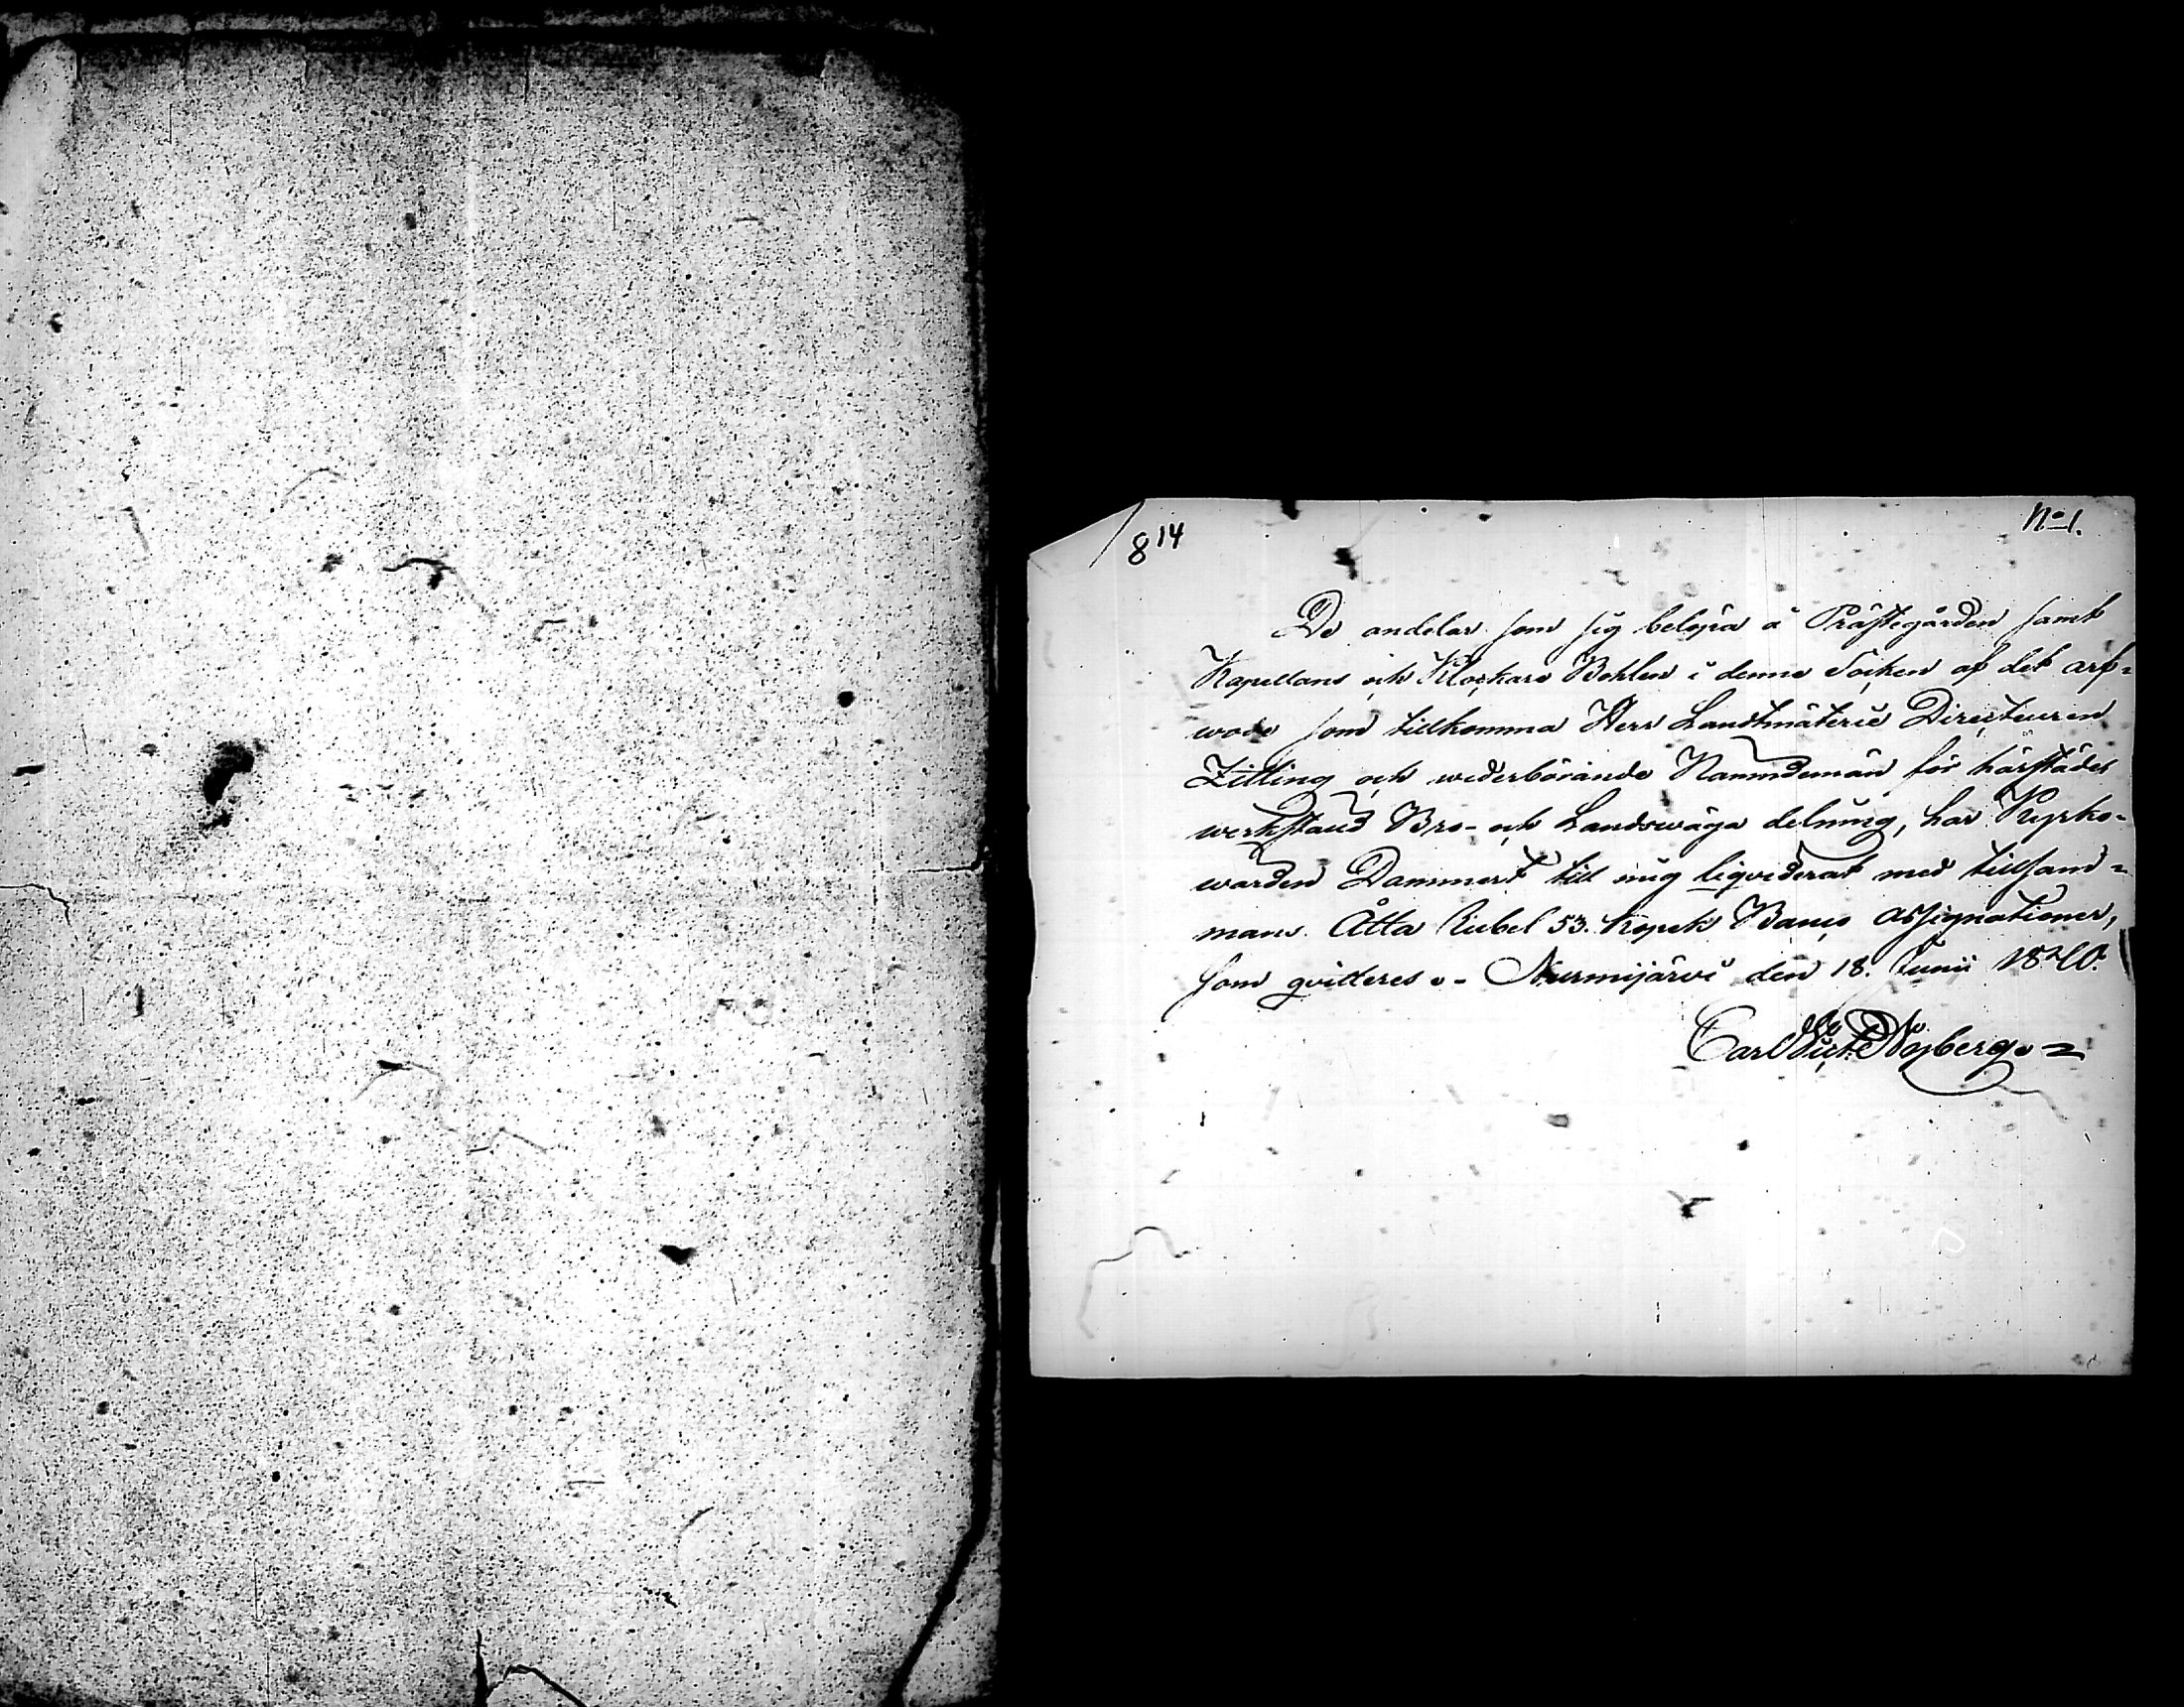 8 14
No 1.
De andelar som sig belöpa å Prästegården samt
Kapellans och Klockare Bohlen i denna Socken af det arf-
wode som tillkomma Herr Landtmäterie Directeuren
Zitting och wederbörande Nämndemän för härstädes
werkstäld Bro- och Landswäga delning, har Kyrko-
warden Dammert till mig liqviderat med tillsam-
mans Åtta Rubel 53. Kopek Banco Assignationer,
som qvitteres. - Nurmijärvi den 18. Junii 1820.
Carl Nyberg.